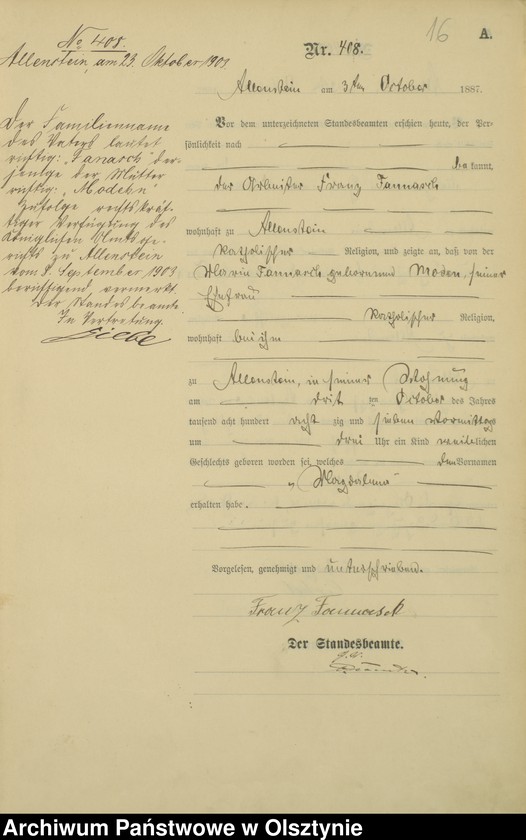 16
A.
No 408.
Allenstein, am 23. Oktober 1903
Der Familienname
des Vaters lautet
richtig: "Janasch" der-
jenige der Mutter
richtig: "Modehn"
zufolge rechtskräf-
tiger Verfügung des
Königlichen Amtsge-
richts zu Allenstein
vom September 1903
berichtigend vermerkt.
Der Standesbeamte
In Vertretung.
Nr. 408.
Allenstein am 3ten October 1887.
Vor dem unterzeichneten Standesbeamten erschien heute, der Per-
sönlichkeit nach
be kannt,
der Arbeiter Franz Jannasch
wohnhaft zu Allenstein
katholischer Religion, und zeigte an, daß von der
Maria Jannasch geborenen Moden, seiner
Ehefrau
katholischer Religion,
wohnhaft bei ihm
zu Allenstein, in seiner Wohnung
am drit ten October des Jahres
tausend acht hundert acht zig und sieben Vormittags
um drei Uhr ein Kind weiblichen
Geschlechts geboren worden sei, welches den Vornamen
"Magdalena"
erhalten habe.
Vorgelesen, genehmigt und unterschrieben.
Franz Jannasch
Der Standesbeamte.
Archiwum Państwowe w Olsztynie